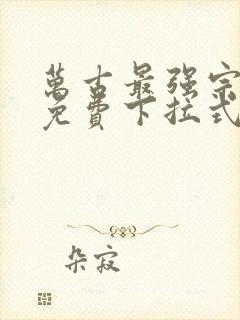 萬古最强宗
免費下拉式
朵寂